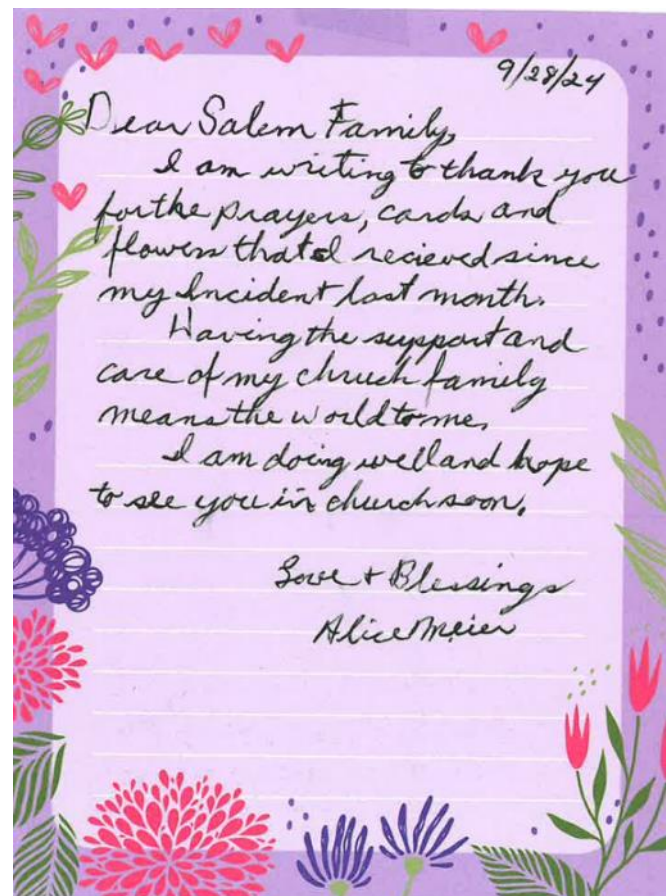 9/28/24
Dear Salem Family,
I am writing to thank you
for the prayers, cards and
flowers that I recieved since
my Incident last month.
Having the support and
care of my chruch family
means the world to me.
I am doing well and hope
to see you in church soon.
Love + Blessings
Alice Meier